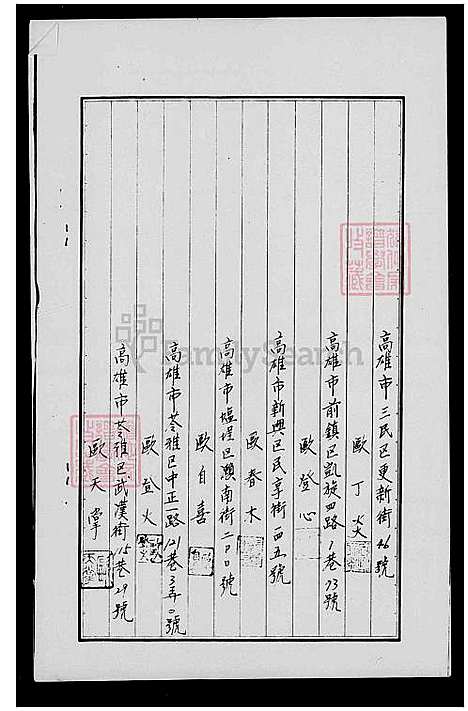 高雄市三民区更新街46號
歐丁炎
高雄市前鎮区凱旋四路1巷73號
歐登心
高雄市新興区民享街一四五號
歐春木
高雄市塩埕区興南街二00號
歐自喜
高雄市苓雅区中正一路121巷3弄0號
歐登火
高雄市苓雅区武漢街15巷29號
歐天掌
FamilySearch